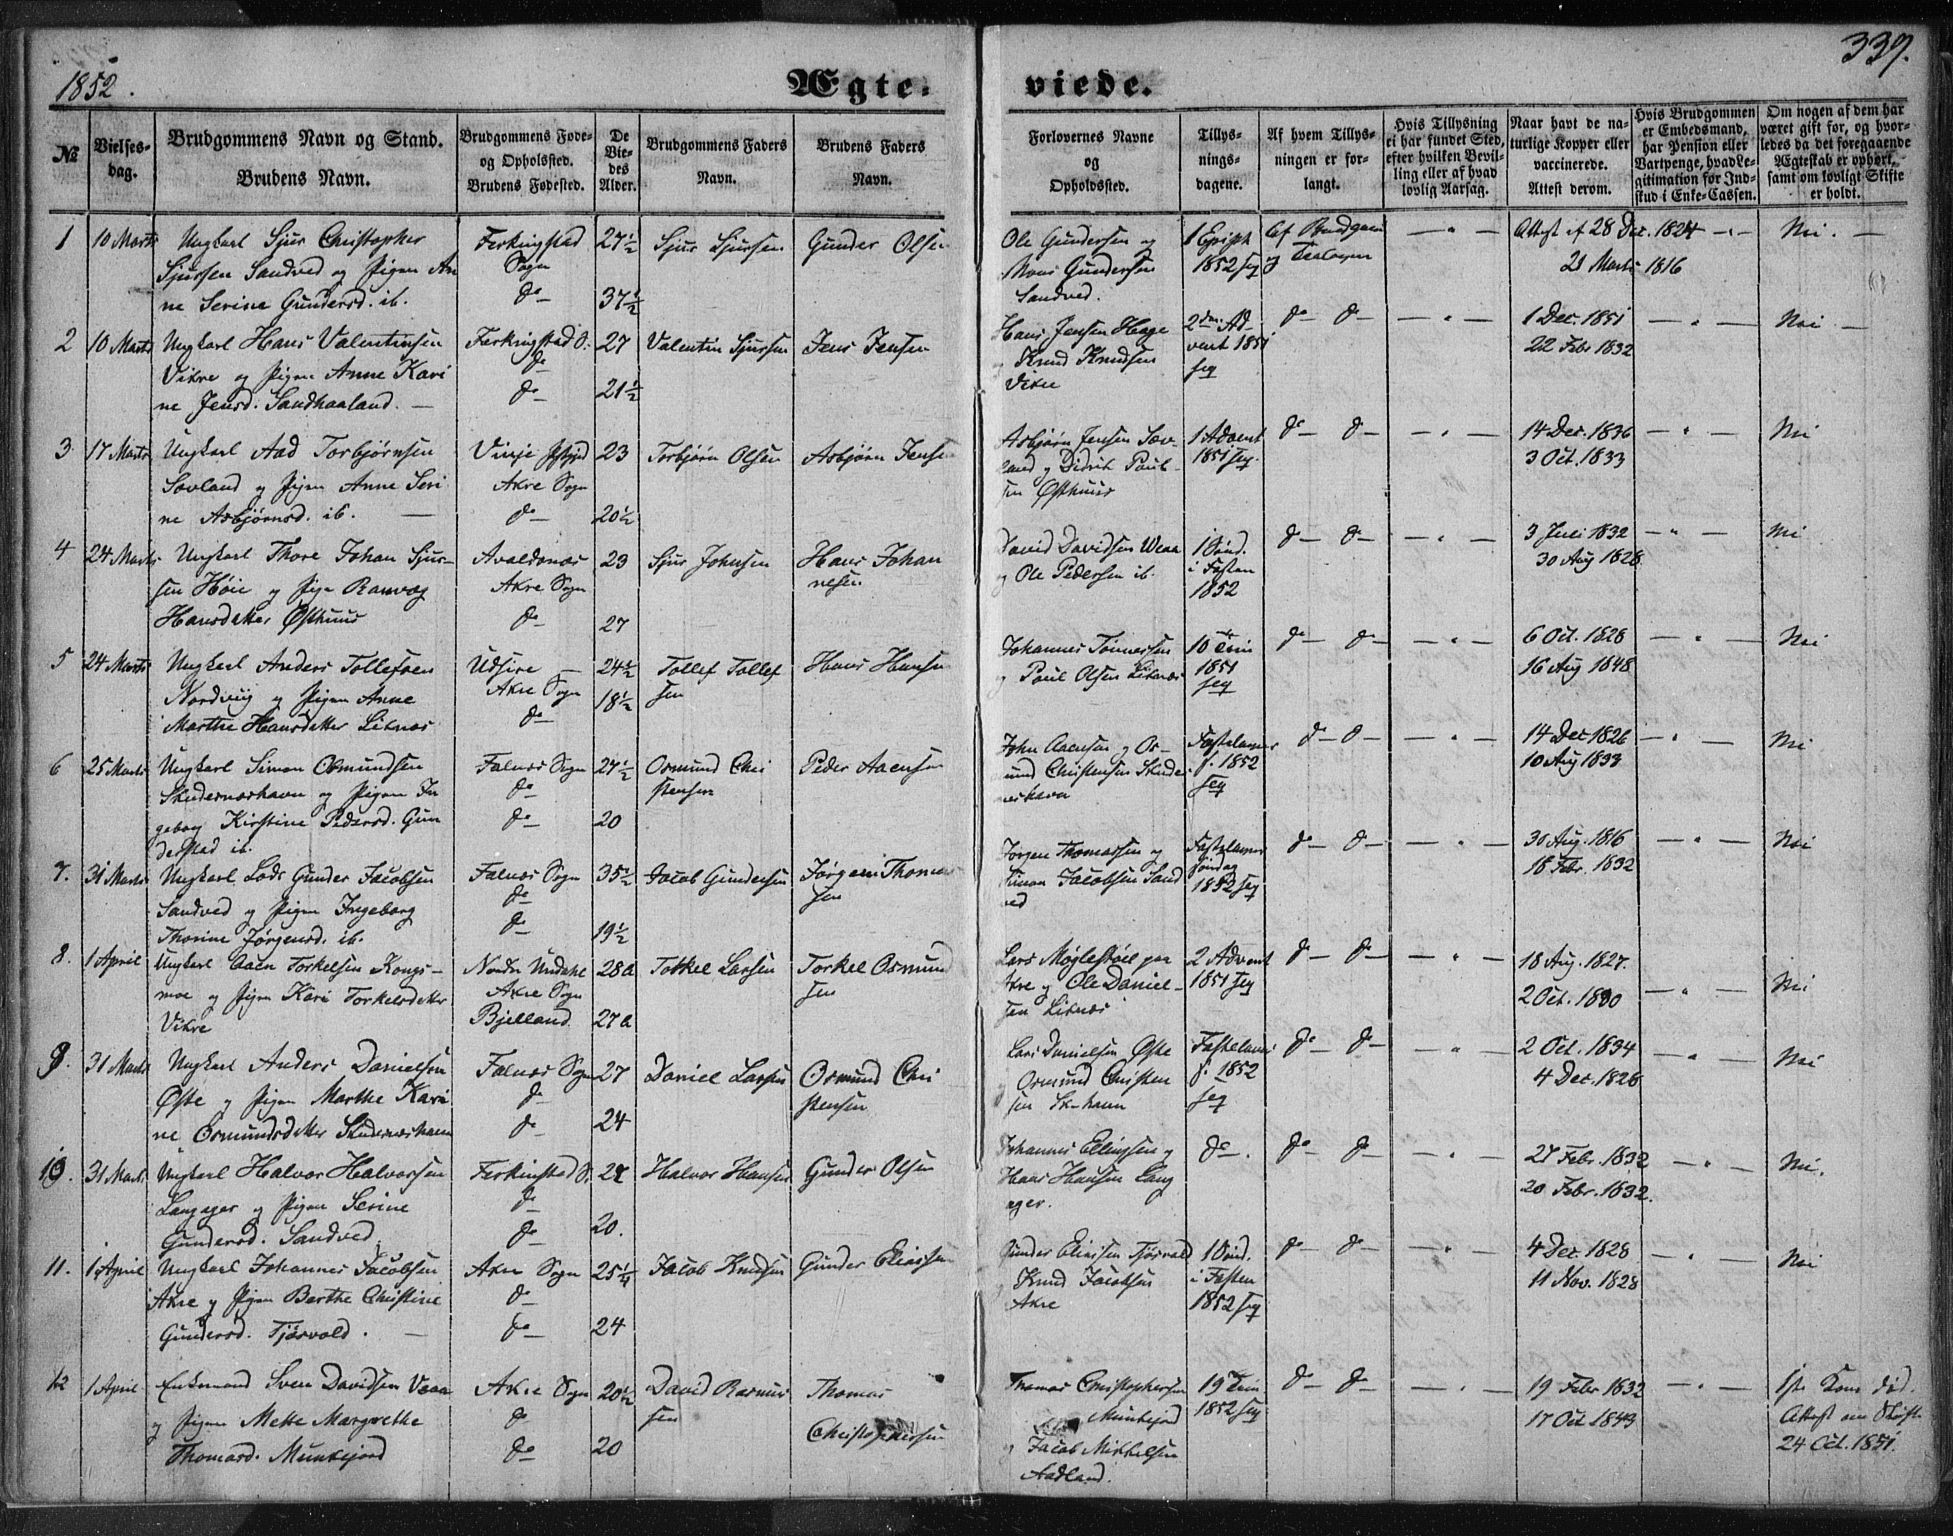 1852.
Ægte-
viede.
339.
№
Vielses-
dag.
Brudgommens Navn og Stand.
Brudens Navn.
Brudgommens Føde-
og Opholdssted.
Brudens Fødested.
De
Vie-
des
Alder.
Brudgommens Faders
Navn.
Brudens Faders
Navn.
Forlovernes Navne
og
Opholdssted.
Tillys-
nings-
dagene.
Af hvem Tillys-
ningen er for-
langt.
Hvis Tillysning
ei har fundet Sted,
efter hvilken Bevil-
ling eller af hvad
lovlig Aarsag.
Naar havt de na-
turlige Kopper eller
vaccinerede.
Attest derom.
Hvis Brudgommen
er Embedsmand,
har Pension eller
Vartpenge, hvad Le-
gitimation for Ind-
skud i Enke-Cassen.
Om nogen af dem har
været gift før, og hvor-
ledes da det foregaaende
Ægteskab er ophørt,
samt om lovligt Skifte
er holdt.
1 10 Marts Ungkarl Sjur Christopher
Sjursen Sandved og Pigen An
ne Serine Gundersd. ib.
Ferkingstad
Sogn
do
27½
37½
Sjur Sjursen
Gunder Olsen
Ole Gundersen og
Mons Gundersen
Sandved.
1 Epiph
1852 seq
Af Brudgom
Attest af 28 Dec. 1824
21 Marts 1816
Nei.
2 10 Marts Ungkarl Hans Valentinsen
Vikre og Pigen Anne Kari
ne Jensd. Sandhaaland.
Ferkingstad S.
do
do
27
21½
Valentin Sjursen
Jens Jensen
Hans Jensen Hage
og Knud Knudsen
Vikre
2den Ad
vent 1851
seq
do do
1 Dec. 1851
22 Febr 1832
Nei.
3 17 Marts Ungkarl Aad Torbjørnsen
Sovland og Pigen Anne Seri
ne Asbjørnsd. ib.
Vinje
Akre Sogn
do
23
20½
Torbjørn Olsen
Asbjørn Jensen
Asbjørn Jensen Søv-
land og Didrik Paul-
sen Østhuus
1 Advent
1851 seq.
do do
14 Dec. 1836
3 Oct. 1833
Nei
4 24 Marts Ungkarl Thore Johan Sjur-
sen Høie og Pige Ranvæg
Hansdatter Østhuus
Avaldsnæs
Akre Sogn
do
23
27
Sjur Johnsen
Hans Johan
nesen
David Davidsen Weaa
og Ole Pedersen ib.
1 Sønd.
i Fasten
1852
do do
3 Juni 1832
30 Aug 1828
Nei
5 24 Marts Ungkarl Anders Tollefsen
Nordviig og Pigen Anne
Marthe Hansdatter Liknæs
Udsire
Akre Sogn
do
24½
18½
Tollef Tollef
sen
Hans Hansen
Johannes Tønnesen
og Poul Olsen Liknæs
10 Trin
1851
seq
do do
6 Oct. 1828
16 Aug 1848
Nei
6 25 Marts Ungkarl Simon Osmundsen
Skudesnæshavn og Pigen In
geborg Kirstine Pedersd. Gun
derstad ib.
Falnæs Sogn
do
do
24½
20
Osmund Chri
stensen
Peder Aaensen
John Aaensen og Os-
mund Christensen Skudes
næshavn
Fastelavns
s. 1852
seq
do do
14 Dec 1826
10 Aug 1833
Nei
7. 31 Marts Ungkarl Lods Gunder Jacobsen
Sandved og Pigen Ingeborg
Thorine Jørgensd. ib.
Falnæs Sogn
do
do
35½
19½
Jacob Gundersen
Jørgen Thomas
sen
Jørgen Thomassen og
Simon Jacobsen Sand
ved
Fastelavns
søndag
1852 seq
do do
30 Aug. 1816
18 Febr. 1832
Nei
8. 1 April Ungkarl Aaen Torkelsen Kongs-
moe og Pigen Kari Torkelsdatter
Vikre
Nordre Undahl
Akre Sogn
Bjelland
28a
27a
Torkel Larsen
Torkel Osmund
sen
Lars Møglestøl paa
Akre og Ole Daniel-
sen Liknæs
2 Advent
1851 seq
do do
18 Aug. 1827.
2 Oct. 1830
Nei
9. 31 Marts Ungkarl Anders Danielsen
Øste og Pigen Marthe Kari
ne Osmundsdatter Skudesnæshavn
Falnæs Sogn
do
do
27
24
Daniel Larsen
Osmund Chri
stensen
Lars Danielsen Øste
og Osmund Christen
sen Sk-havn
Fastelavns
s. 1852
seq
do do
2 Oct. 1834
4 Dec. 1828
Nei
10. 31 Marts Ungkarl Halvor Halvorsen
Langager og Pigen Serine
Gundersd. Sandved
Ferkinstad S.
do
do
20.
Halvor Hansen
Gunder Olsen
Johannes Ellingsen og
Hans Hansen Lang
ager.
do.
do do
27 Febr. 1832
20 Febr. 1832.
Nei.
11. 1 April Ungkarl Johannes Jacobsen
Akre og Pigen Berthe Christine
Gundersd. Tjøsvold.
Akre Sogn
do
do
25¼
24
Jacob Knudsen
Gunder Eliassen
Gunder Eliassen Tjøsvold
og Knud Jacobsen
Akre
1 Sønd.
i Fasten
1852 seq
do do
4 Dec. 1828
11 Nov. 1828
Nei
12 1 April Enkemand Sven Davidsen Veaa
og Pigen Mette Margrethe
Thomasd. Munkejord
Akre Sogn
do
do
20½
20
David Rasmus
sen
Thomas
Christophersen
Thomas Christophersen
Munkejord
og Jacob Mikkelsen
Aadland.
19 Trin
1852 seq
do do
19 Febr 1832
17 Oct 1843
1ste Kone død.
Attest om Skifte
24 Oct. 1851.